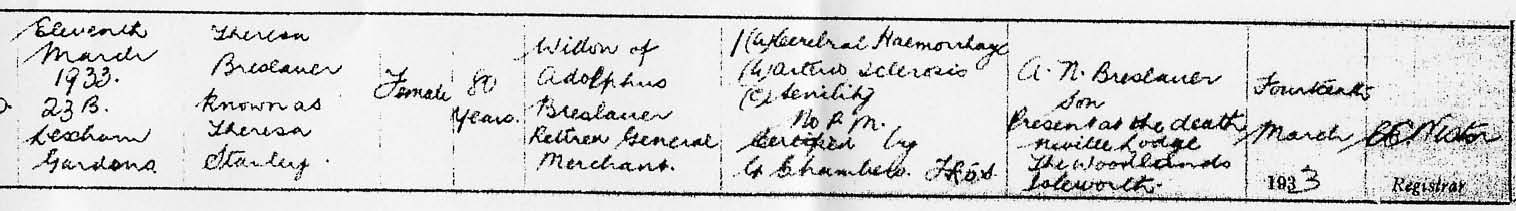 Eleventh
March
1933.
23 B.
Lexham
Gardens
Theresa
Breslauer
known as
Theresa
Stanley.
Female
80
Years.
Widow of
Adolphus
Breslauer
Retired General
Merchant.
1(a) Cerebral Haemorrhage
(b) Arterio Sclerosis
(c) Senility
No P.M.
Certified by
Chambers
A. N. Breslauer
Son
Present at the death
Neville Lodge
The Woodlands
Isleworth.
Fourteenth
March
1933
Registrar